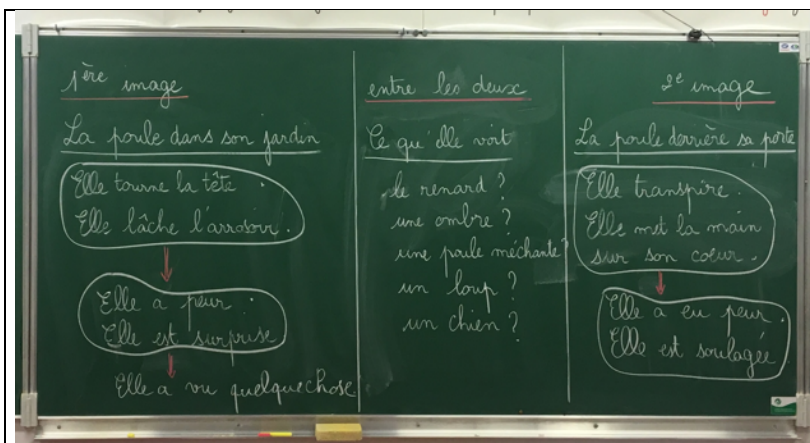 1ère image
La poule dans son jardin
Elle tourne la tête.
Elle lâche l'arrosoir.
Elle a peur.
Elle est surprise
Elle a vu quelquechose
entre les deux
Ce qu'elle voit
le renard ?
une ombre ?
une poule méchante ?
un loup ?
un chien ?
2e image
La poule derrière sa porte
Elle transpire.
Elle met la main
sur son coeur.
Elle a eu peur.
Elle est soulagée